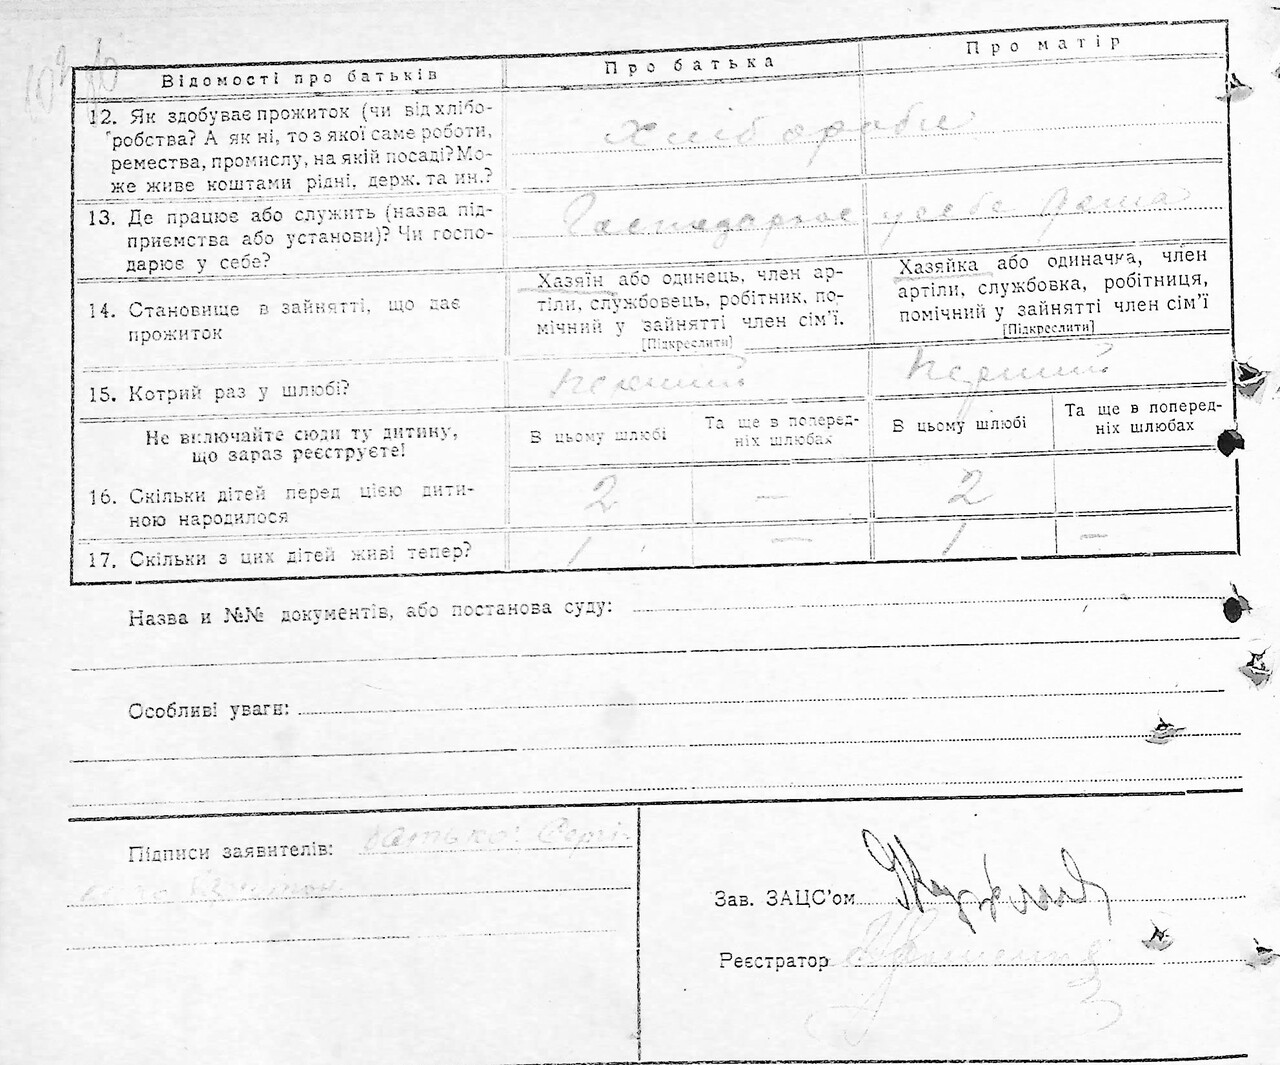 Відомості про батьків
Про батька
Про матір
12. Як здобуває прожиток (чи від хлібо-
робства? А як ні, то з якої саме роботи,
ремества, промислу, на якій посаді? Мо-
же живе коштами рідні, держ. та ин.?
Хлібороби
13. Де працює або служить (назва під-
приємства або установи)? Чи госпо-
дарює у себе?
у себе дома
14. Становище в зайнятті, що дає
прожиток
Хазяїн або одинець, член ар-
тіли, службовець, робітник, по-
мічний у зайнятті член сім'ї.
[Підкреслити]
Хазяйка або одиначка, член
артіли, службовка, робітниця,
помічний у зайнятті член сім'ї
[Підкреслити]
15. Котрий раз у шлюбі?
перший
перший
Не включайте сюди ту дитину,
що зараз реєструєте!
В цьому шлюбі
Та ще в поперед-
ніх шлюбах
В цьому шлюбі
Та ще в поперед-
ніх шлюбах
16. Скільки дітей перед цією дити-
ною народилося
2 — 2
17. Скільки з цих дітей живі тепер?
1 — 1 —
Назва и №№ документів, або постанова суду:
Особливі уваги:
Підписи заявителів: батько:
Зав. ЗАЦС'ом
Реєстратор